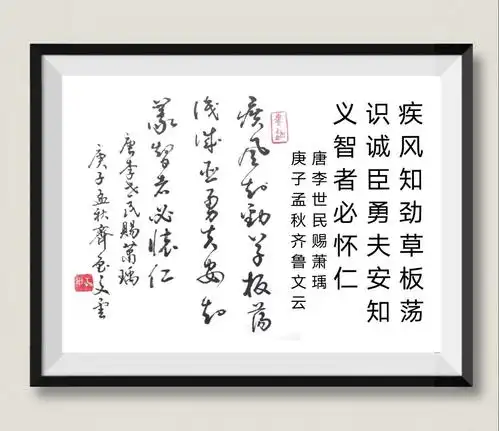 疾风知劲草板荡
识诚臣勇夫安知
义智者必怀仁
唐李世民赐萧瑀
庚子孟秋齐鲁文云
疾风知劲草板荡
识诚臣勇夫安知
義智者必懷仁
唐李世民赐萧瑀
庚子孟秋齊鲁文雲